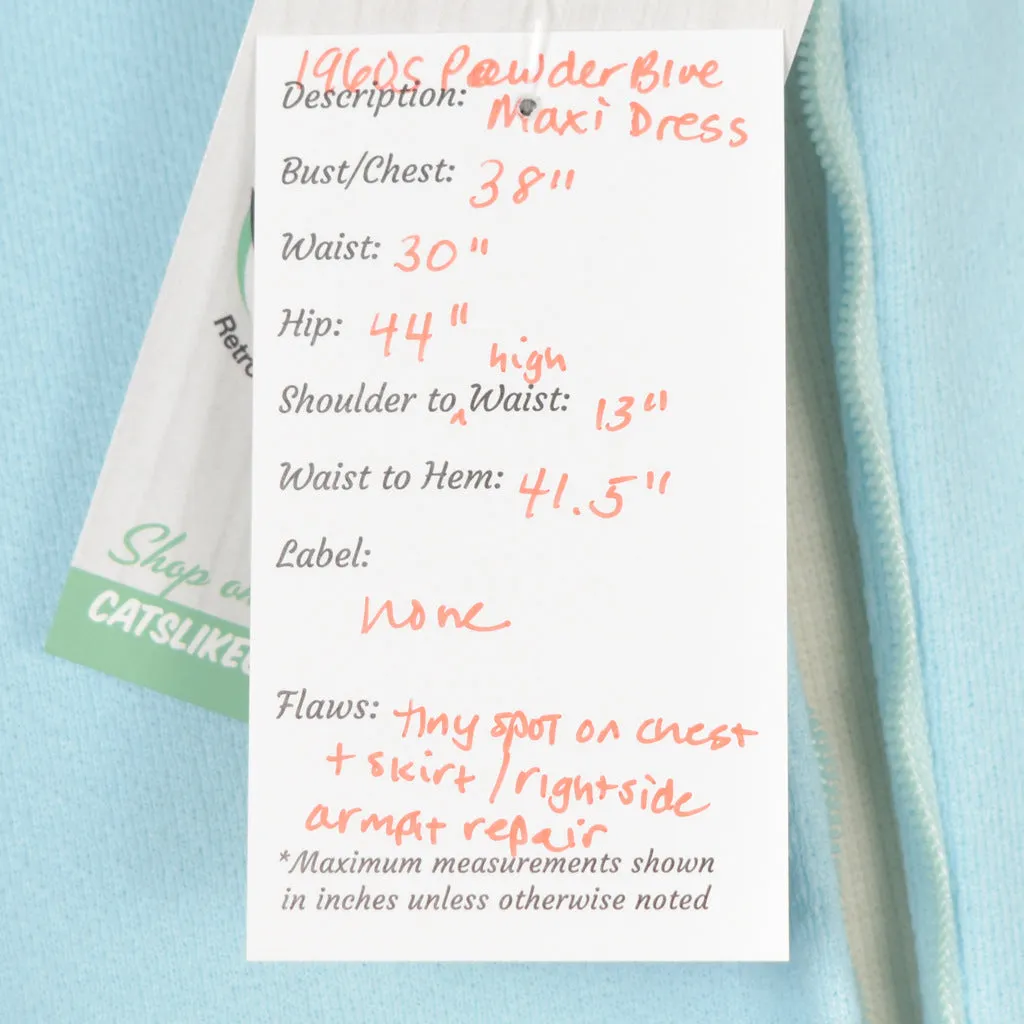 1960s Powder Blue
Description: Maxi Dress
Bust/Chest: 38"
Waist: 30"
Hip: 44"
high
Shoulder to ^ Waist: 13"
Waist to Hem: 41.5"
Label:
none
Flaws: tiny spot on chest
+ skirt / right side
armpit repair
*Maximum measurements shown
in inches unless otherwise noted
Retro
Shop on
CATSLIKE